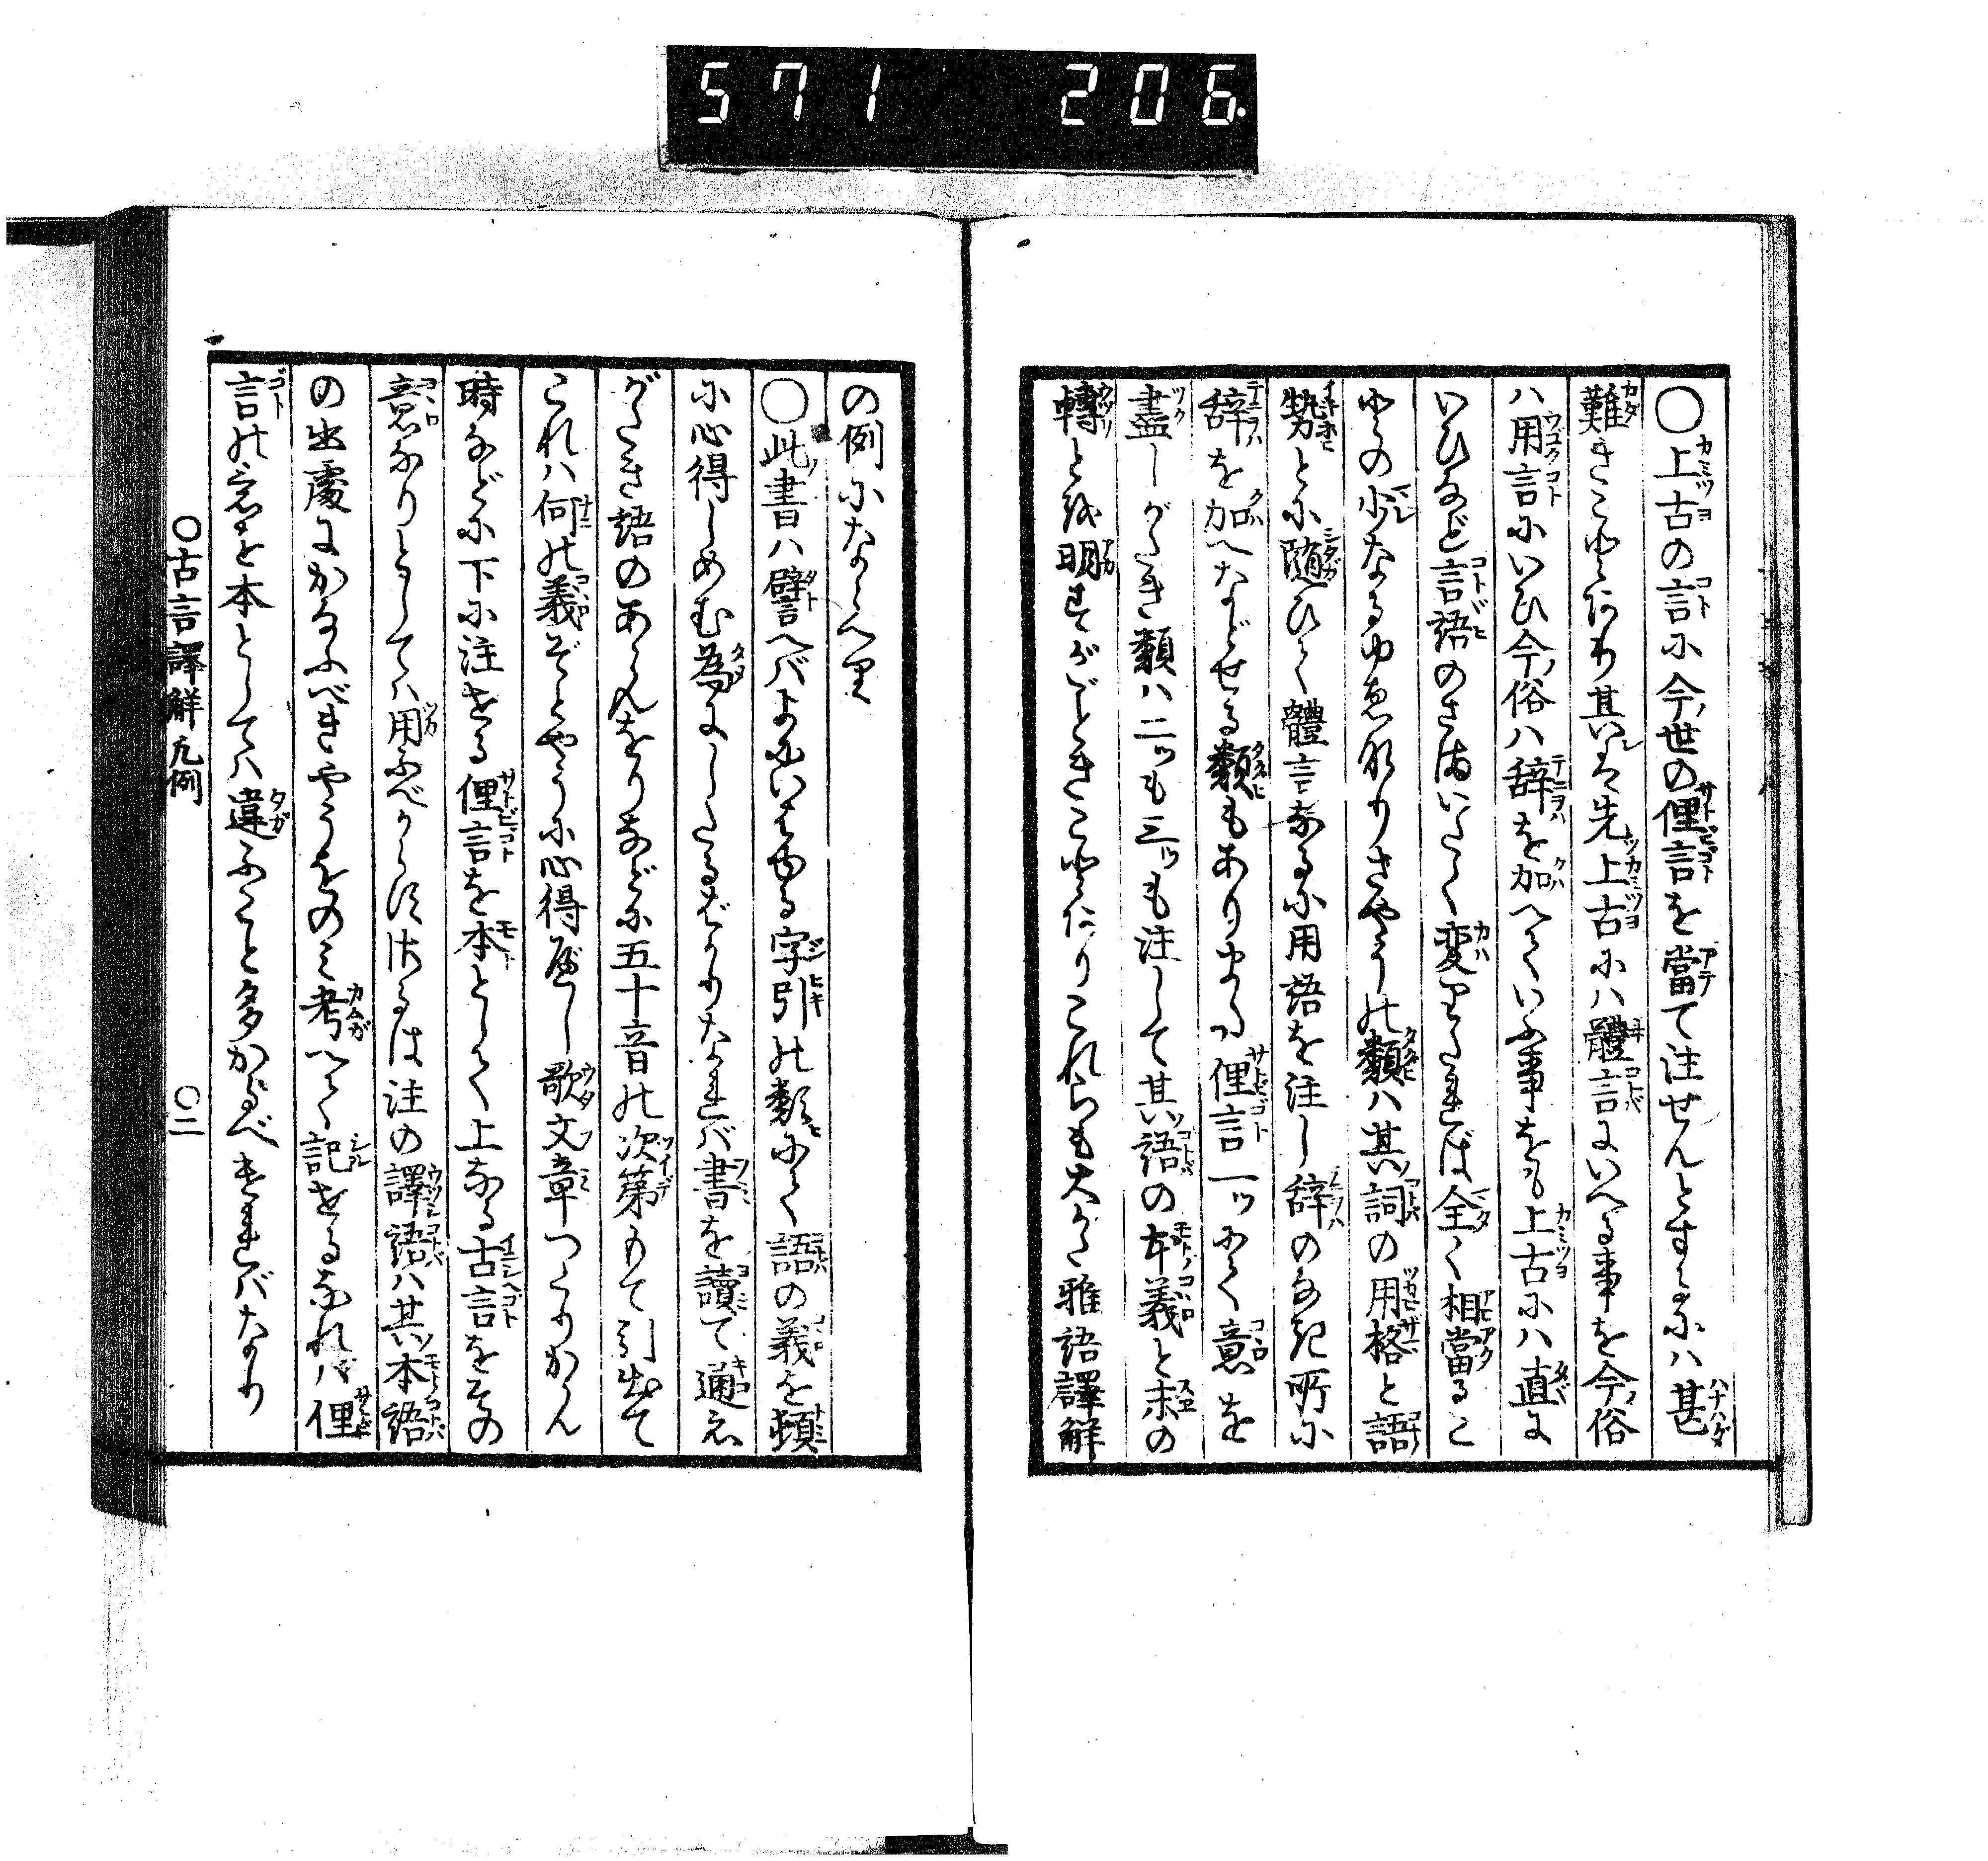 571 206.
○上古の言に今世の俚言を當て注せんとするには甚
難きことあり其は先上古には體言にいへる事を今俗
は用言にいひ今俗は辞を加へていふ事をも上古には直に
いひなど言語のさまいたく変りたれば全く相當るこ
との少なるゆゑなりさやうの類は其詞の用格と語
勢とに随ひて體言なるに用語を注し辞のなき所に
辞を加へなどせる類もありまた俚言一ッにて意を
盡しがたき類は二ッも三ッも注して其語の本義と末の
轉とを明すがごときことありこれらも大かた雅語譯解
の例にならへり
○此書は譬へばよにいはゆる字引の類にて語の義を頓
に心得しめむ為にしたるばかりなれば書を讀て通え
がたき語のあらんをりなどに五十音の次第もて引出て
これは何の義ぞとやうに心得べし歌文章つくりかん
時などに下に注せる俚言を本として上なる古言をその
意なりとしては用ふべからずさるは注の譯語は其本語
の出處にかなふべきやうをのみ考へて記せるなれば俚
言の意を本としては違ふこと多かるべければなり
○古言譯解凡例 ○二